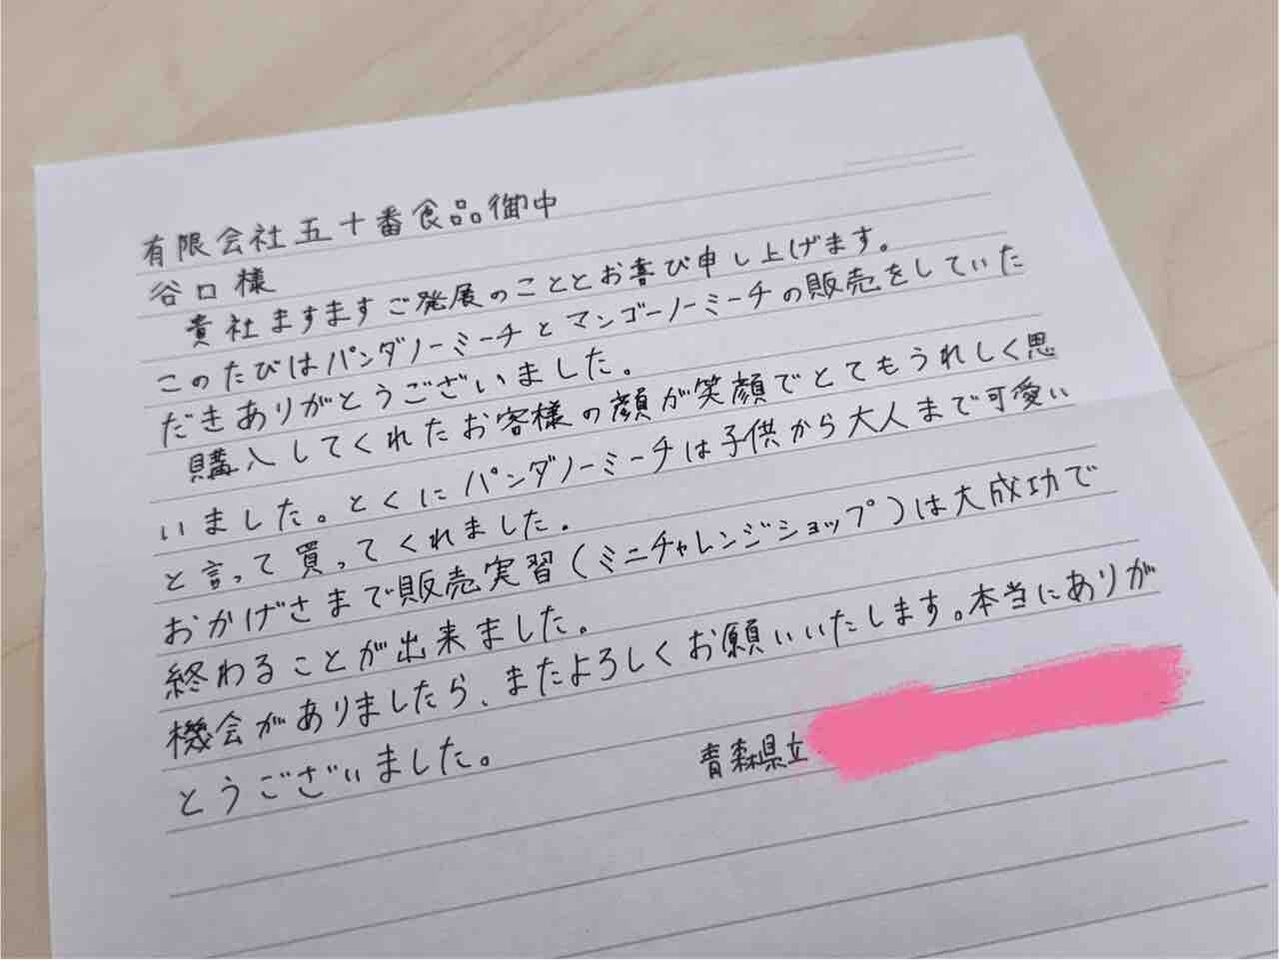 有限会社五十番食品御中
谷口様
貴社ますますご発展のこととお喜び申し上げます。
このたびはパンダノーミーチとマンゴーノーミーチの販売をしていた
だきありがとうございました。
購入してくれたお客様の顔が笑顔でとてもうれしく思
いました。とくにパンダノーミーチは子供から大人まで可愛い
と言って買ってくれました。
おかげさまで販売実習(ミニチャレンジショップ)は大成功で
終わることが出来ました。
機会がありましたら、またよろしくお願いいたします。本当にありが
とうございました。
青森県立